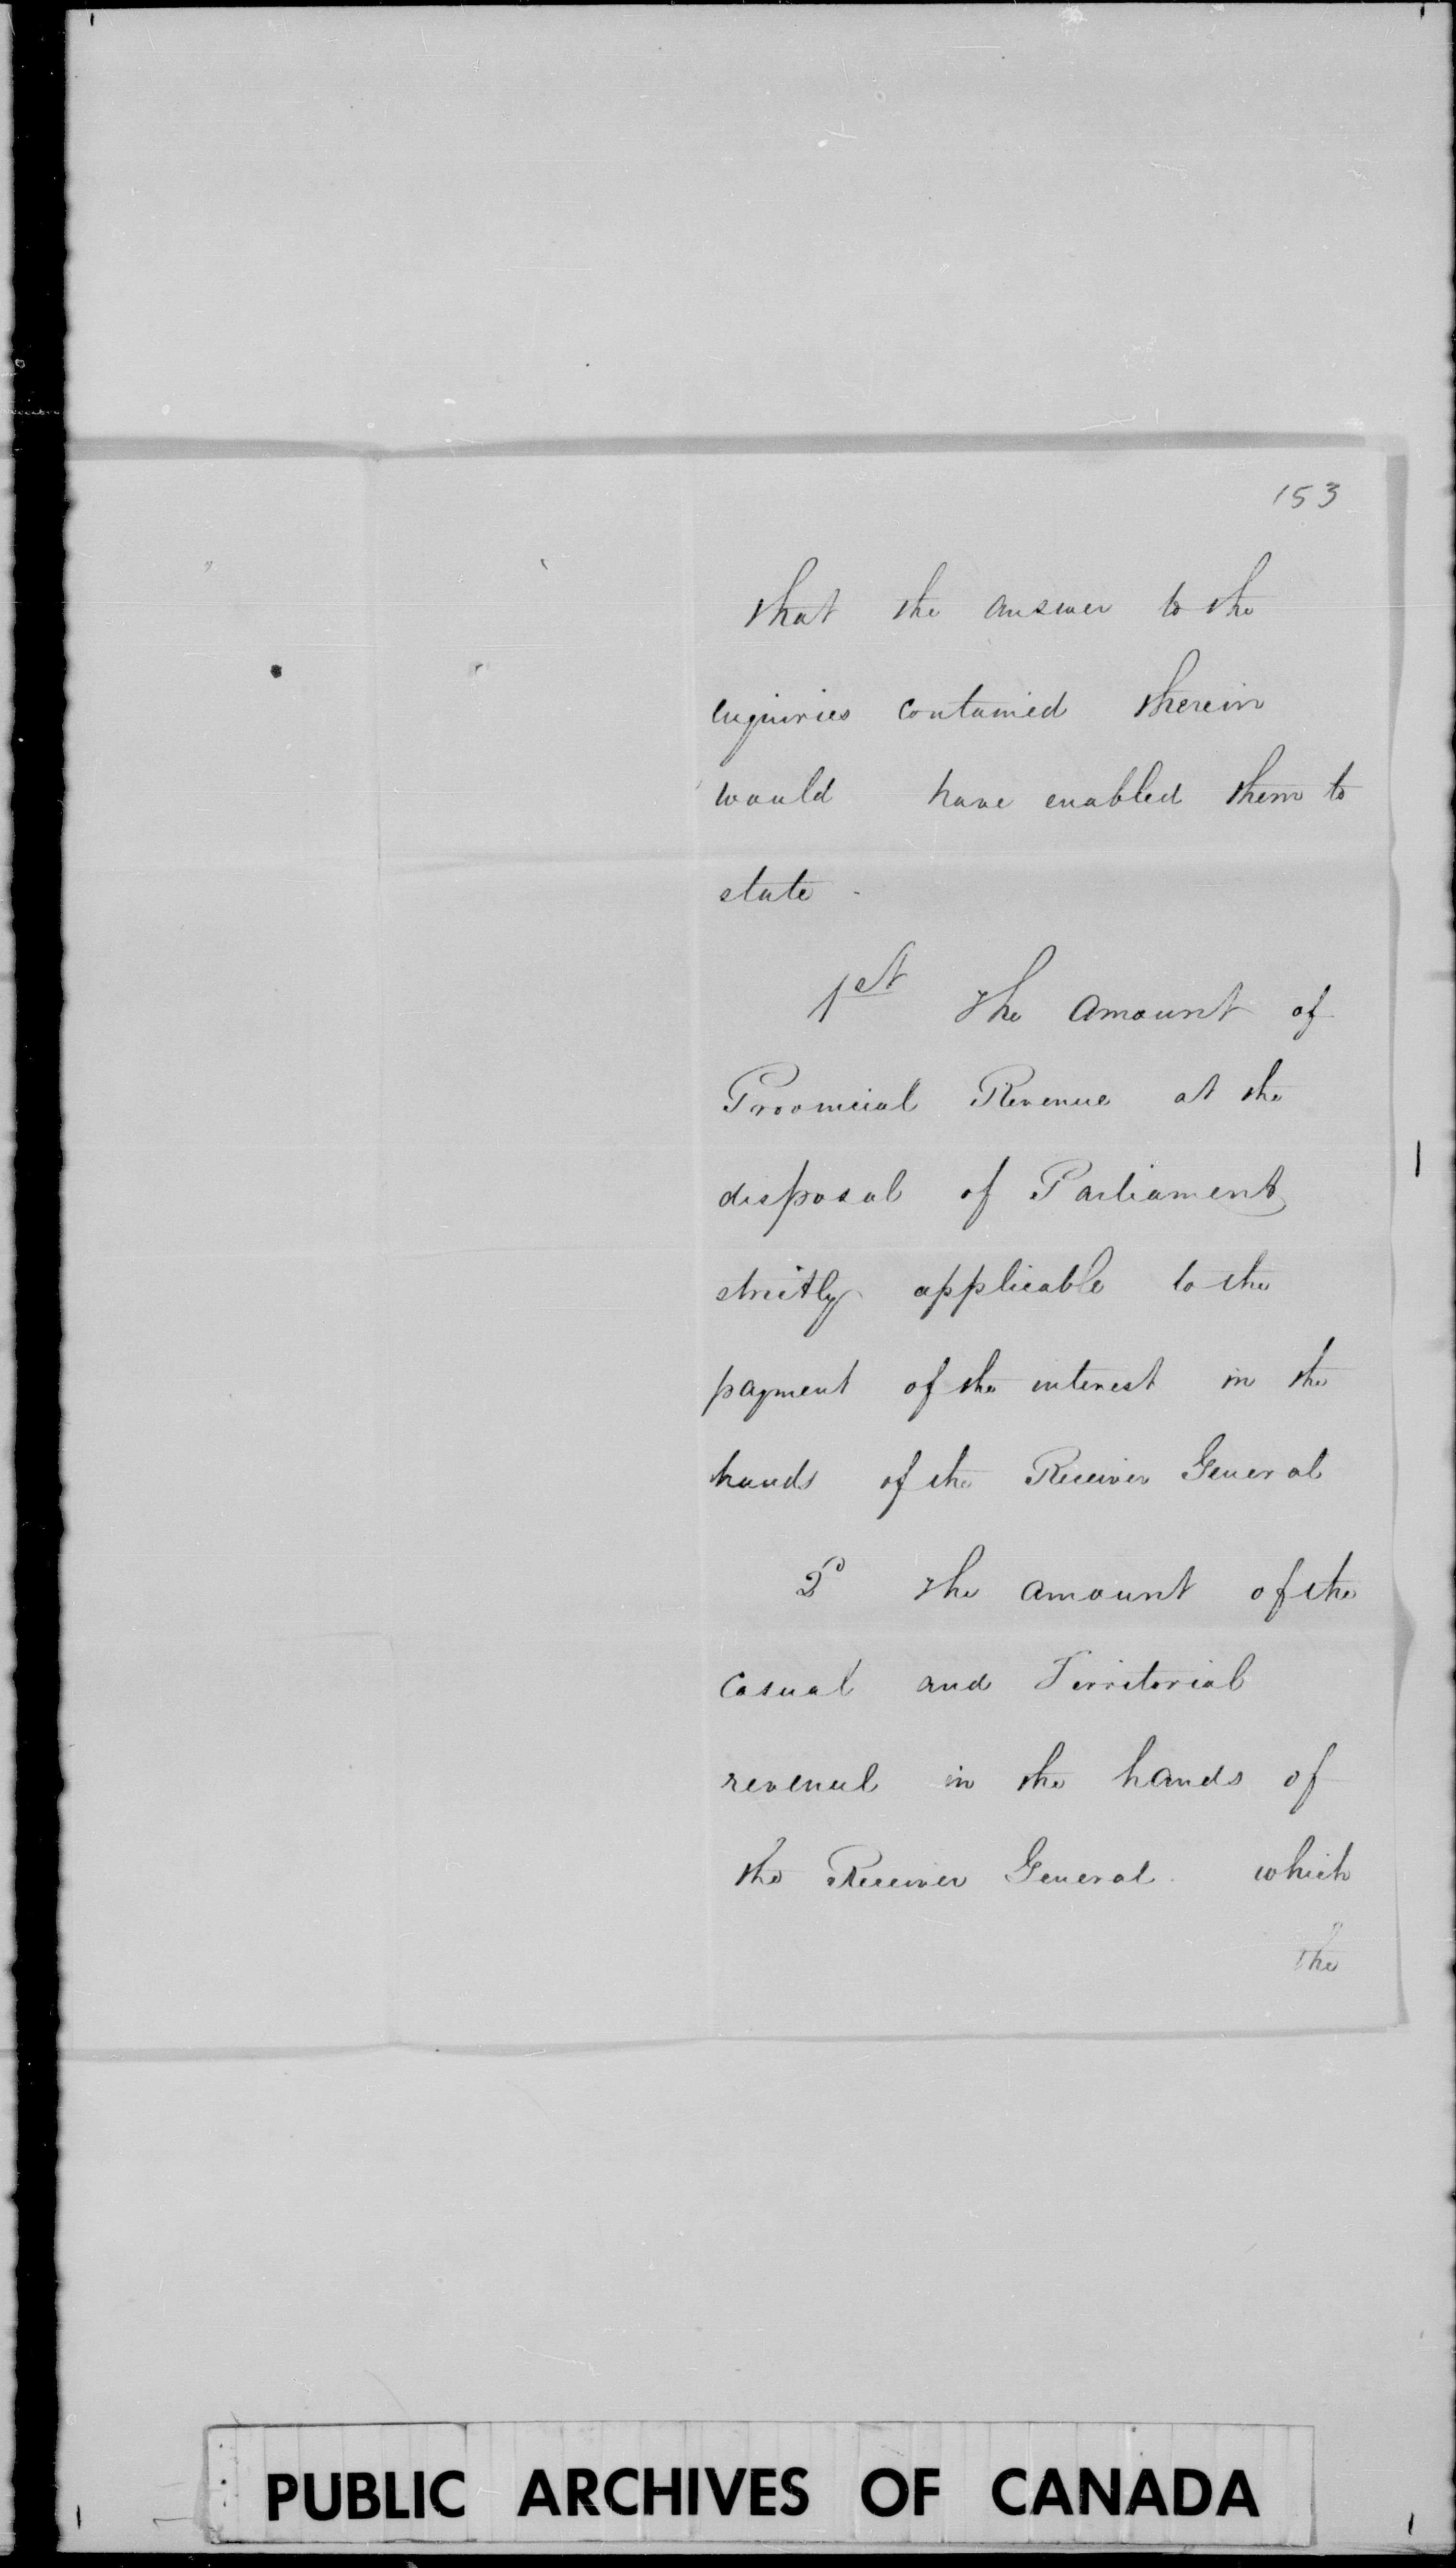 153
that the answer to the
enquiries contained therein
would have enabled them to
state -
1st The amount of
Provincial Revenue at the
disposal of Parliament
strictly applicable to the
payment of the interest in the
hands of the Receiver General
2d The amount of the
Casual and Territorial
revenue in the hands of
the Receiver General which
the
PUBLIC ARCHIVES OF CANADA